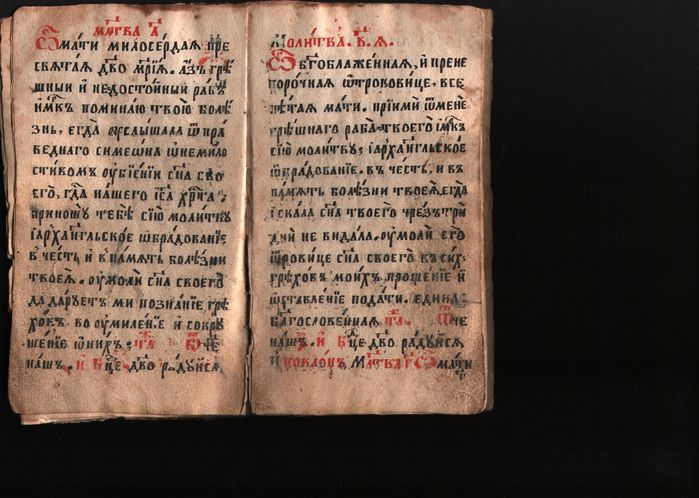 мл҃тва а҃
Ѽ мати милосердая пре
свѧтая дв҃о мр҃іѧ. азъ грѣ
шный и недостойный рабъ
имр҃къ поминаю твою болѣ
знь, егда оуслышала ѿ пра
веднаго симеѡна ѡ немило
стивомъ оубіеніи сн҃а сво
его, гд҃а нашего іс҃а хр҃та.
приношу тебѣ сію молитву
іархаг҃гльское ѡбрадованіе
в честь и в память болѣзни
твоеѧ. оумоли сн҃а своего
да даруетъ ми познаніе грѣ
ховъ во оумиленіе и сокру
шеніе ѡ нихъ; ч҃а Ѿче
нашъ. и Бц҃е дв҃о радуйсѧ
Молитва. в҃. ѧ.
Ѽ бг҃облаженная, и прене
порочная ѿроковице, все
пѣтая мати. пріими ѿ мене
грѣшнаго раба твоего имр҃къ
сію молитву; іархаг҃гльское
ѡбрадованіе. въ честь, и въ
память болѣзни твоеѧ, егда
искала сн҃а твоего чрезъ три
дн҃и не видала. оумоли его
ѿровице сн҃а своего въ сих
грѣховъ моихъ прощеніе и
ѡставленіе подати. едина
благословенная ч҃а. Ѿче
нашъ. и Бц҃е дв҃о радуйсѧ
и поклон. Мл҃тва г҃ Ѽ мати